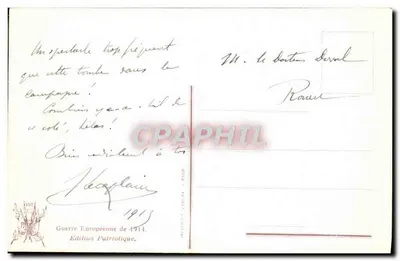 Un spectacle trop fréquent
que cette tombe dans la
campagne !
Combien y en a-t-il de
ce côté, hélas !
Bien cordialement à toi
1915
M. le Docteur Duval
Rouen
Guerre Européenne de 1914.
Edition Patriotique.
DELCAMPE.NET